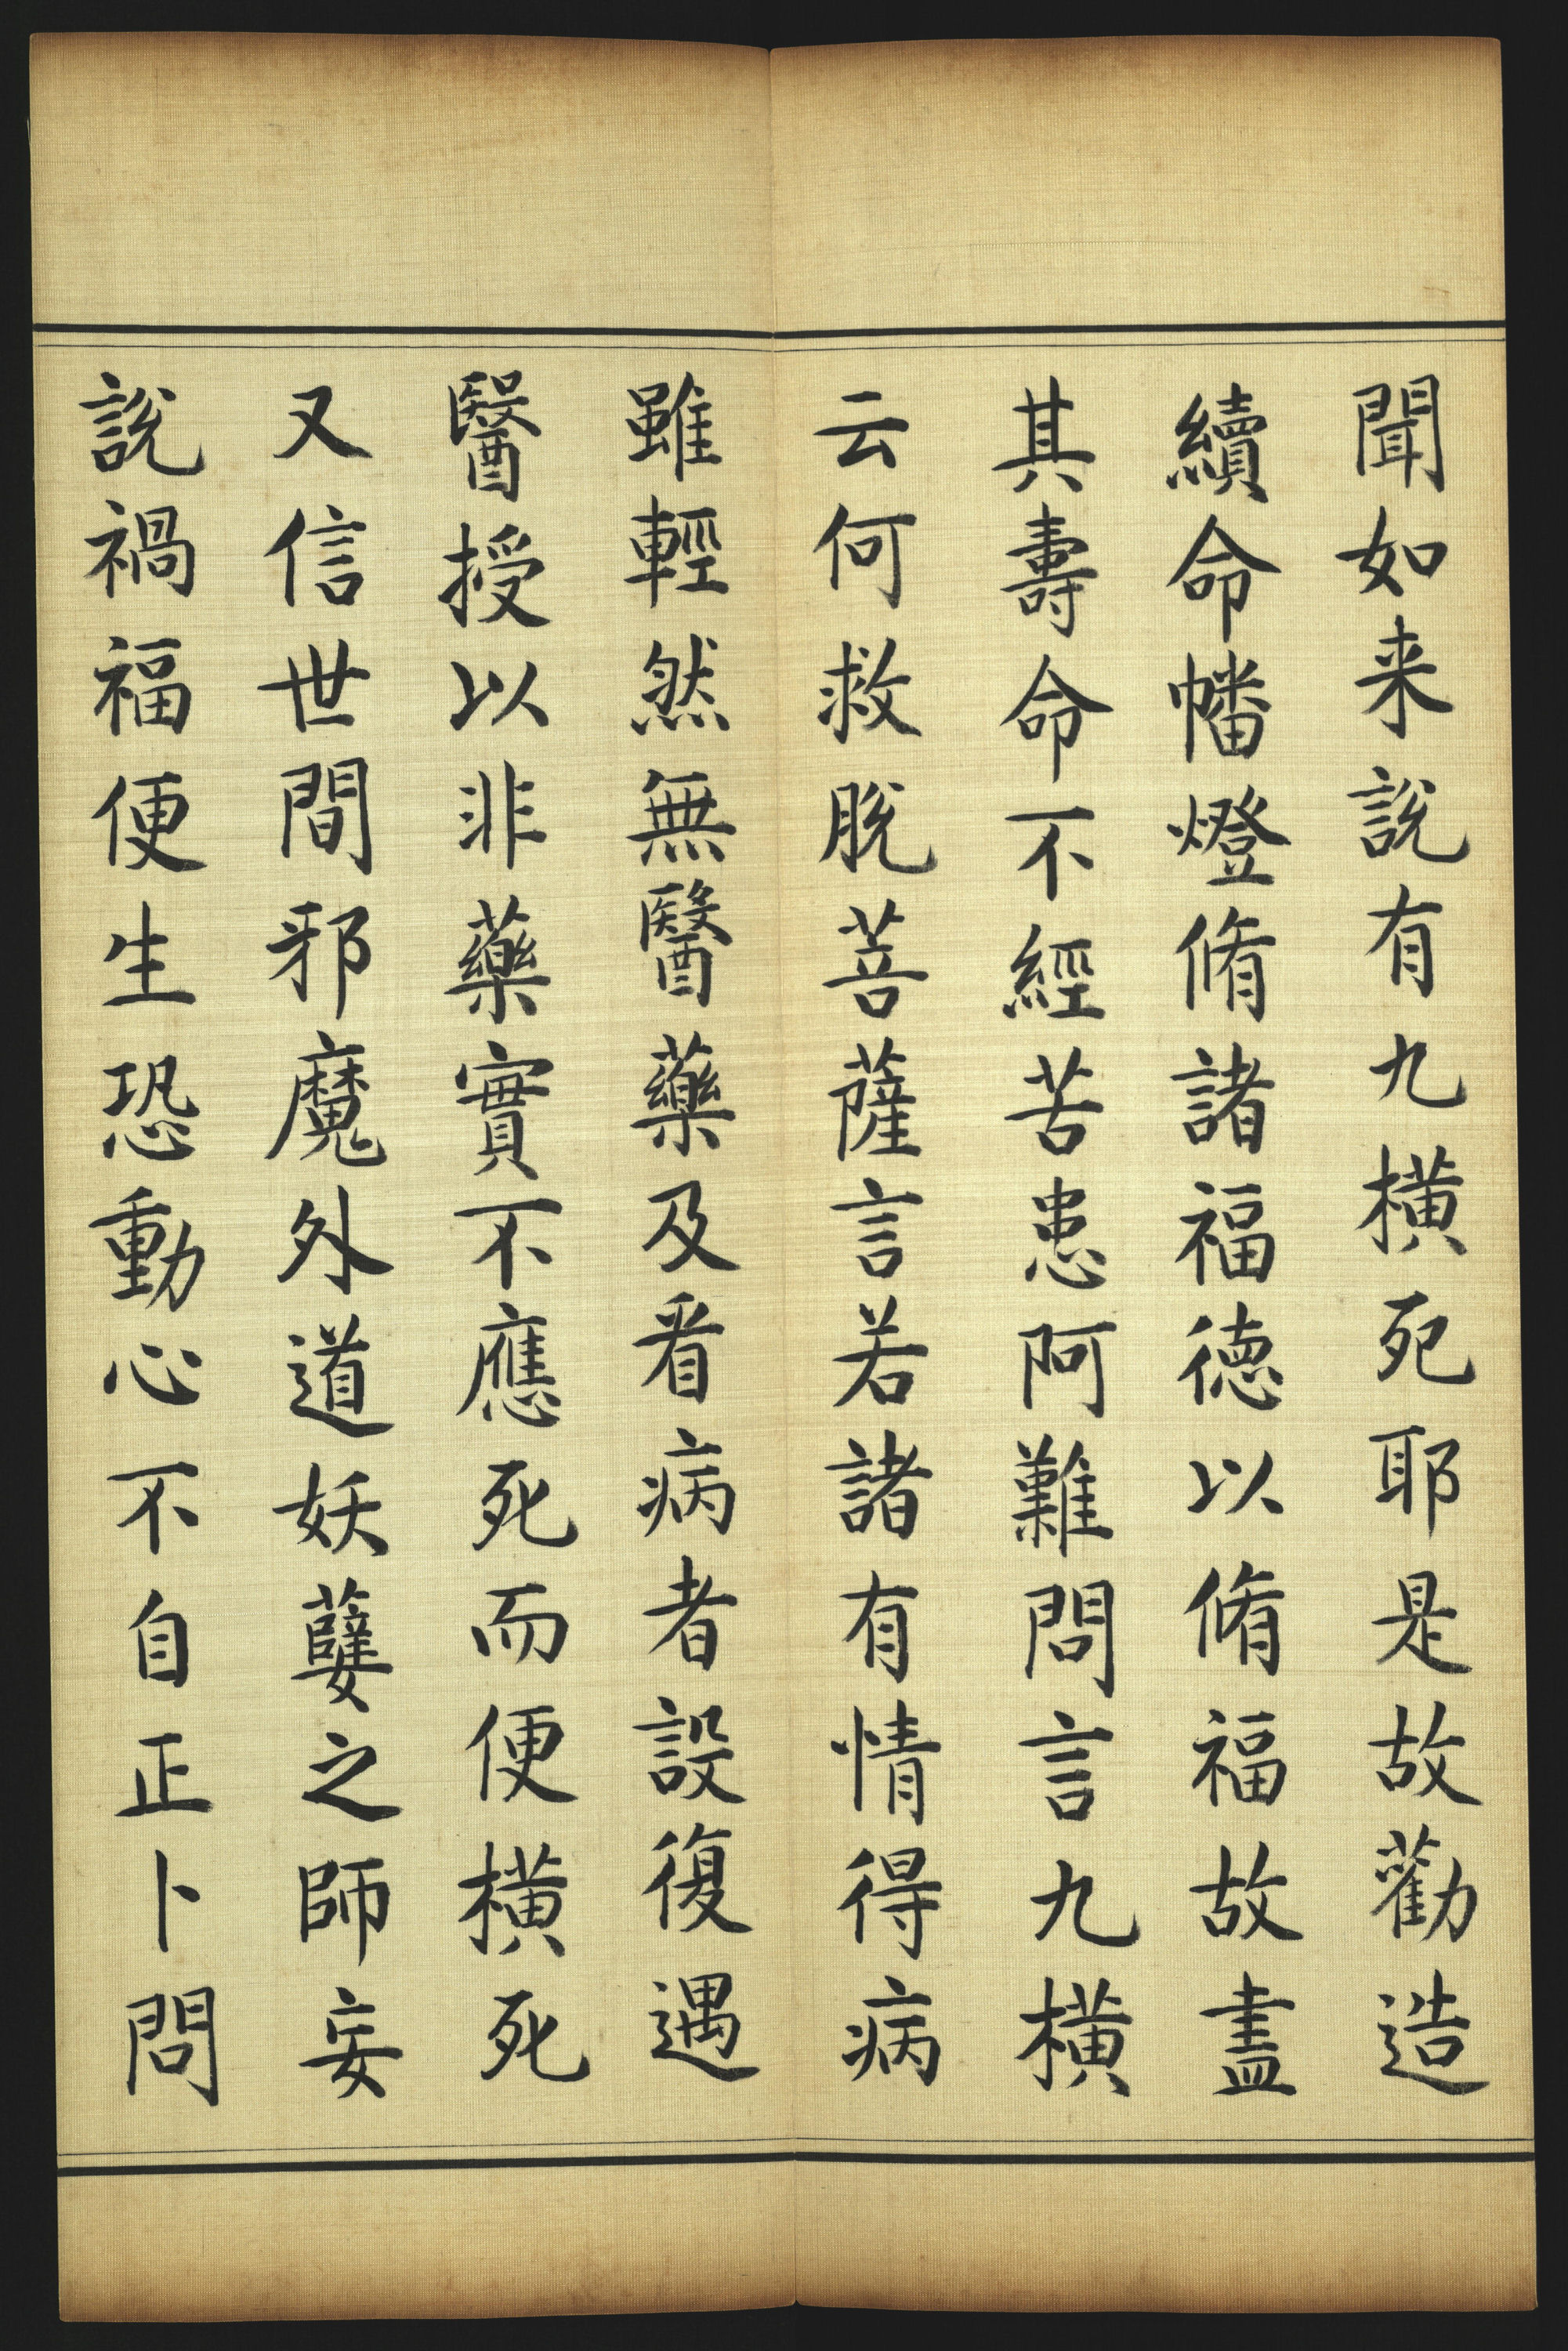 聞如来說有九横死耶是故勸造
續命幡燈脩諸福德以脩福故盡
其壽命不經苦患阿難問言九横
云何救脫菩薩言若諸有情得病
雖輕然無醫藥及看病者設復遇
醫授以非藥實不應死而便横死
又信世間邪魔外道妖孽之師妄
說禍福便生恐動心不自正卜問